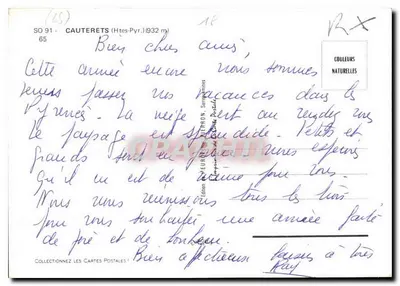 SO 91 - CAUTERETS (Htes-Pyr.) (932 m)
65
(65)
18
RX
COULEURS
NATURELLES
Bien chers amis,
Cette année encore nous sommes
venus passer nos vacances dans les
Pyrénées. La neige est au rendez vous
le paysage est splendide. Petits et
grands sont en nous espérons
qu'il en est de même pour vous.
Nous nous réunissons tous les trois
pour vous souhaiter une année faite
de joie et de bonheur.
Bien affectueux baisers à tous
COLLECTIONNEZ LES CARTES POSTALES